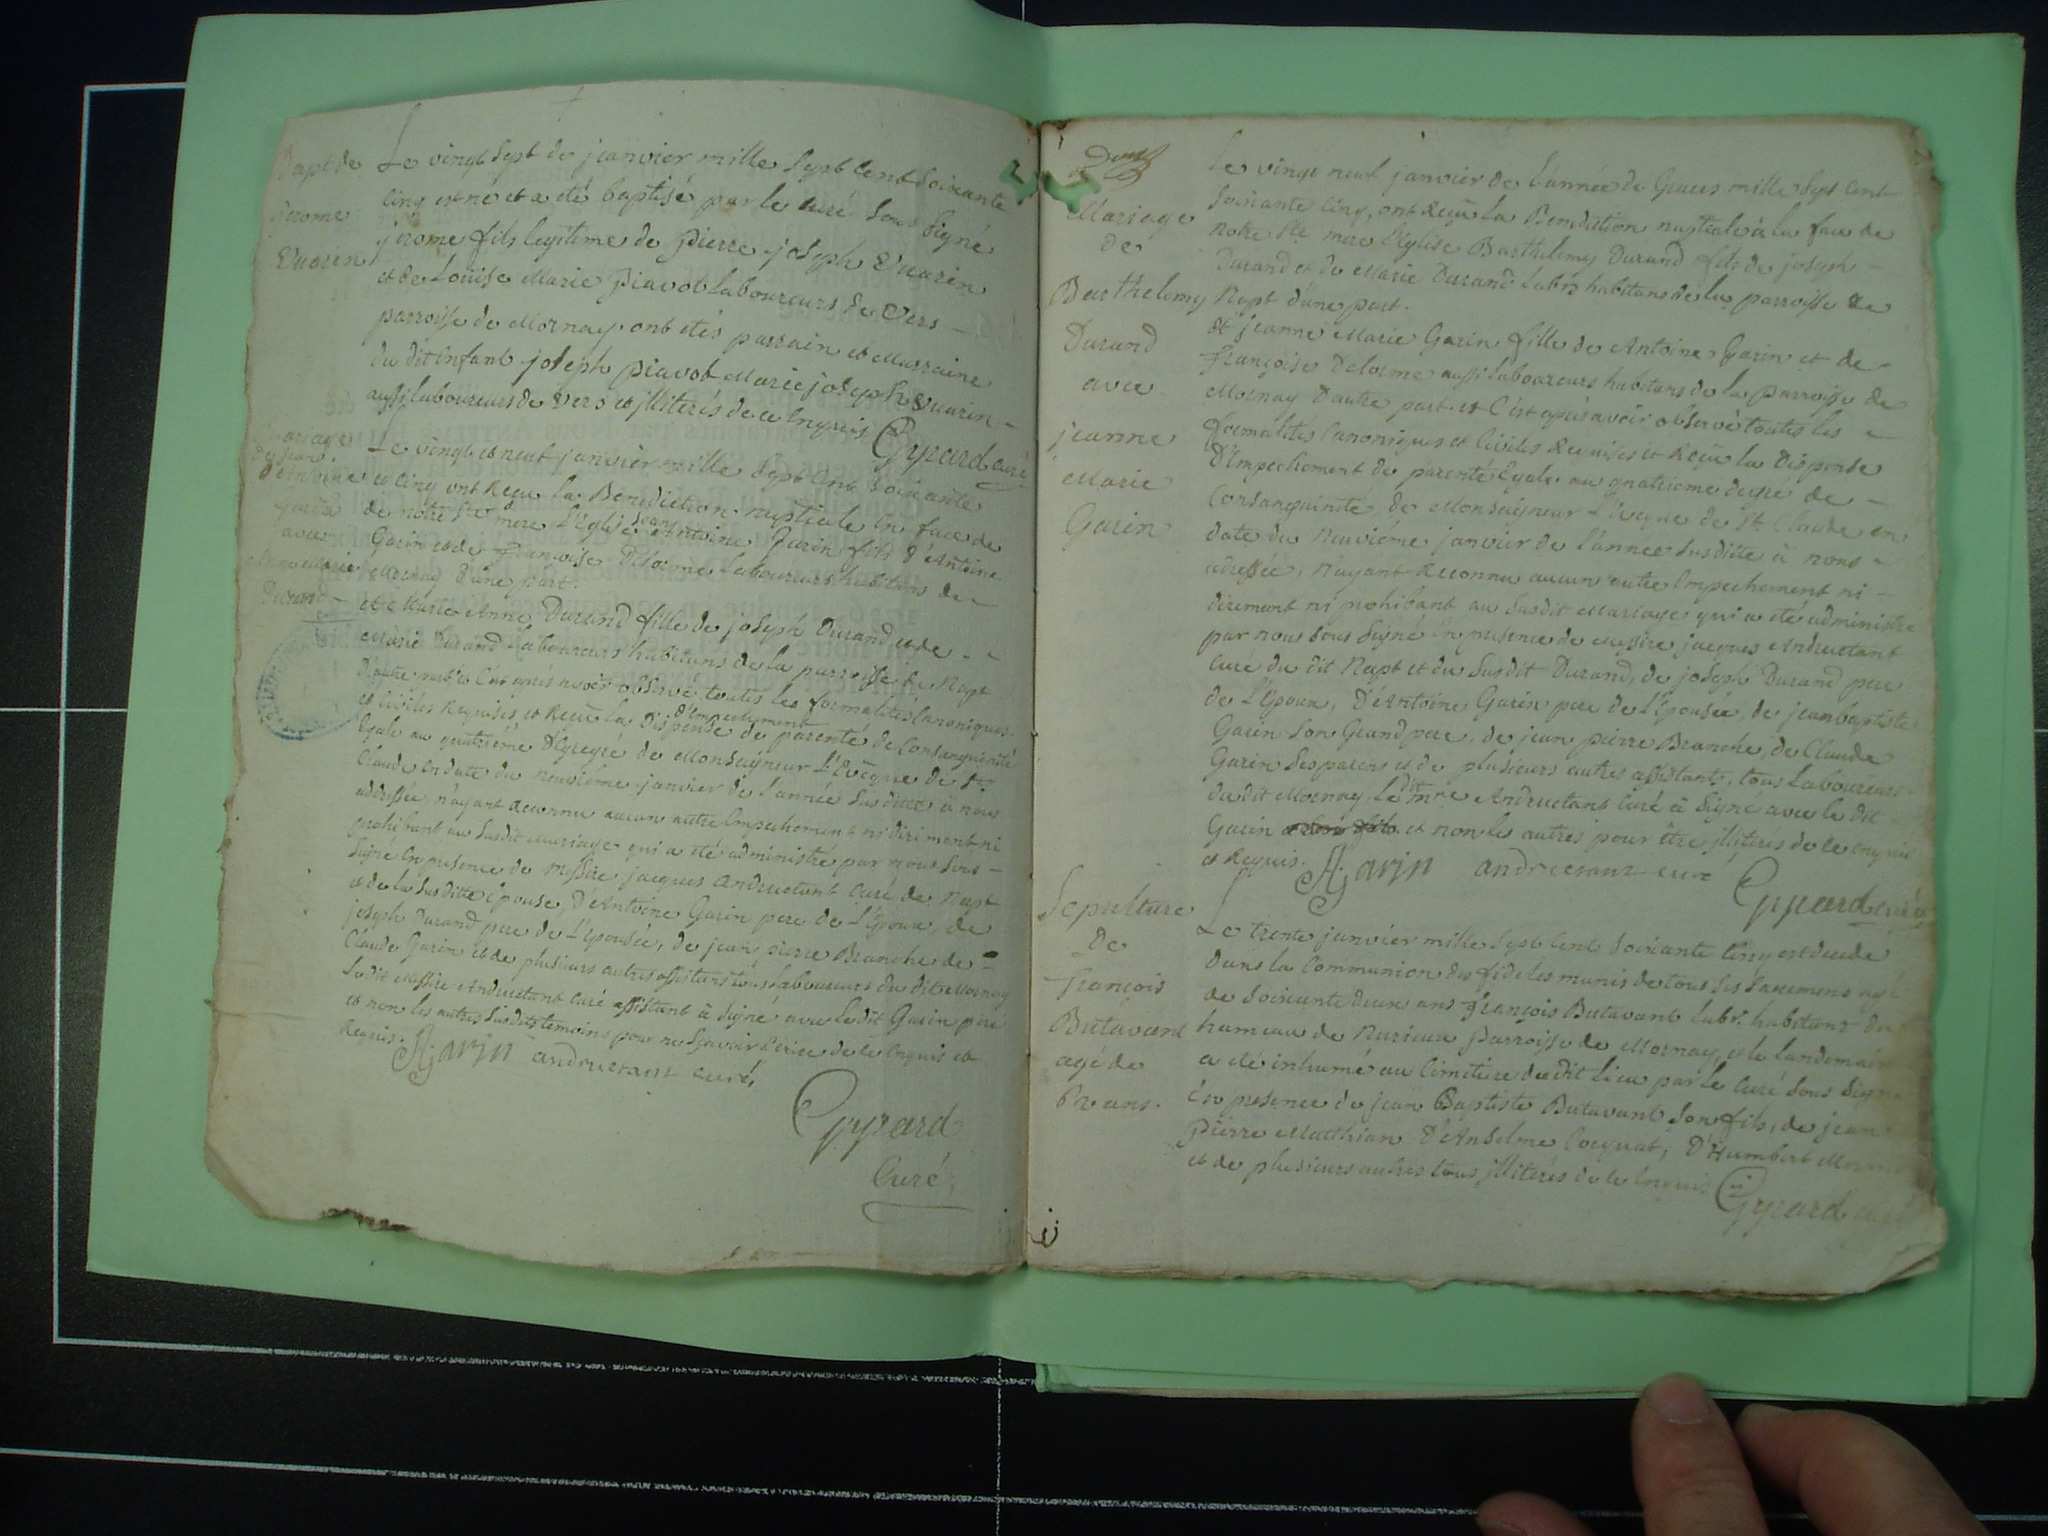 Bapt de
jerome
Vuarin
Le vingt sept de janvier mille sept cent soixante
cinq est né et a eté baptisé par le curé sous signé
jerome fils legitime de pierre joseph Vuarin
et de Louise Marie Piavot laboureurs de Vers
parroisse de Mornay ont etés parrain et Marraine
du dit enfant joseph piavot Marie joseph Vuarin
aussi laboureurs de Vers et illiterés de ce enquis Gyrard curé
Mariage
de jean
d'Antoine
garin
avec
Marie
Durand
Le vingt et neuf janvier mille sept cent soixante
et cinq ont Reçu la Benediction nuptiale en face de
notre ste mere L'Eglise jean Antoine Garin fils d'Antoine
Garin et de françoise Delorme Laboureurs habitans de
Mornay d'une part.
et Marie Anne Durand fille de joseph Durand et de
Marie Durand Laboureurs habitans de la parroisse de Napt
D'autre part et C'est après avoir observé toutes les formalités Canoniques
et Civiles Requises et Reçu la Dispense d'Empechement de parenté de Consanguinité
Egale au quatrième Degré de Monseigneur L'Evêque de St.
Claude en date du neuvième janvier de l'année susditte à nous
addressée, n'ayant Reconnu aucun autre Empechement ni diriment ni
prohibant au susdit Mariage qui a eté administré par nous sous
signé En presence de Messire jacques andructant curé de Napt
et de la susditte épouse, D'Antoine Garin pere de L'époux, de
joseph Durand pere de L'épousée, de jean pierre Branche de
Claude Garin et de plusieurs autres assistans tous laboureurs du dit Mornay
Le dit Messire Andructant Curé assistant à signé avec Le dit Garin pere
et non les autres susdits temoins pour ne sçavoir Ecrire de ce Enquis et
Requis. AGarin andructant curé
Gyrard
Curé
Deux
Mariage
de
Barthelemy
Durand
avec
jeanne
Marie
Garin
Le vingt neuf janvier de L'année de Graces mille sept cent
soixante cinq, ont Reçu la Benediction nuptiale à la face de
notre Ste mere l'Eglise Barthelemy Durand fils de joseph
Durand et de Marie Durand Labrs habitans de la parroisse de
Napt d'une part.
et jeanne Marie Garin fille de Antoine Garin et de
françoise Delorme aussi laboureurs habitans de la parroisse de
Mornay D'autre part et C'est après avoir observé toutes les
formalités Canoniques et Civiles Requises et Reçu la Dispense
D'Empechement de parenté Egale au quatrieme degré de
Consanguinité, de Monseigneur L'Evêque de St Claude en
date du Neuviéme janvier de l'année susditte à nous
adressée, N'ayant Reconnu aucun autre Empechement ni
diriment ni prohibant au susdit Mariage qui a eté administré
par nous sous signé En presence de Messire jacques Andructant
curé du dit Napt et du susdit Durand, de joseph Durand pere
de L'époux, D'Antoine Garin pere de L'épousée, de jean baptiste
Garin son Grand pere, de jean pierre Branche, de Claude
Garin ses parens et de plusieurs autres assistants, tous Laboureurs
du dit Mornay Le dit mre Andructant Curé à signé avec le dit
Garin et non les autres pour être illiteres de ce enquis
et Requis. AGarin andructant curé Gyrard curé
Sepulture
De
françois
Butavand
agé de
62 ans.
Le trente janvier mille sept cent soixante cinq est decedé
Dans la Communion des fideles munis de tous ses sacremens agé
de soixante deux ans françois Butavant labr. habitant du
hameau de Nurieux Parroisse de Mornay, et le landemain
a eté inhumé au Cimetiere du dit lieu par le Curé sous signé
En presence de jean Baptiste Butavant son fils, de jean
Pierre Matthian D'Anselme Cocquat, D'Humbert
et de plusieurs autres tous illiterés de ce Enquis
Gyrard curé